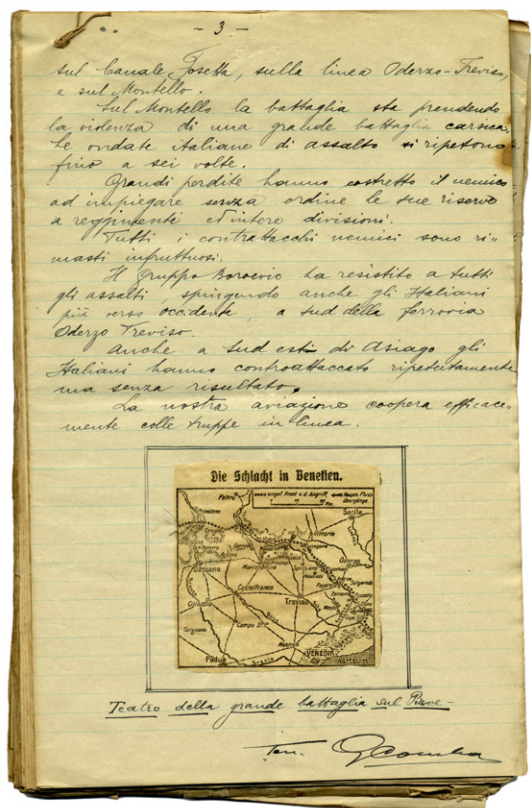 - 3 -
sul Canale Fosetta, sulla linea Oderzo-Treviso,
e sul Montello.
Sul Montello la battaglia sta prendendo
la violenza di una grande battaglia carsica.
Le ondate italiane di assalto si ripetono
fino a sei volte.
Grandi perdite hanno costretto il nemico
ad impiegare senza ordine le sue riserve
a reggimenti ed intere divisioni.
Tutti i contrattacchi nemici sono ri=
masti infruttuosi.
Il Gruppo Boroevic ha resistito a tutti
gli assalti, spingendo anche gli Italiani
più verso occidente, a sud della ferrovia
Oderzo Treviso.
Anche a Sud est di Asiago gli
Italiani hanno controattaccato ripetutamente
ma senza risultato.
La nostra aviazione coopera efficace=
mente colle truppe in linea.
Die Schlacht in Venetien.
Feltre
Sacile
Vittorio
Oderzo
Bassano
Castelfranco
Treviso
Campo S.P.
Padua
VENEDIG
Teatro della grande battaglia sul Piave -
Ten.